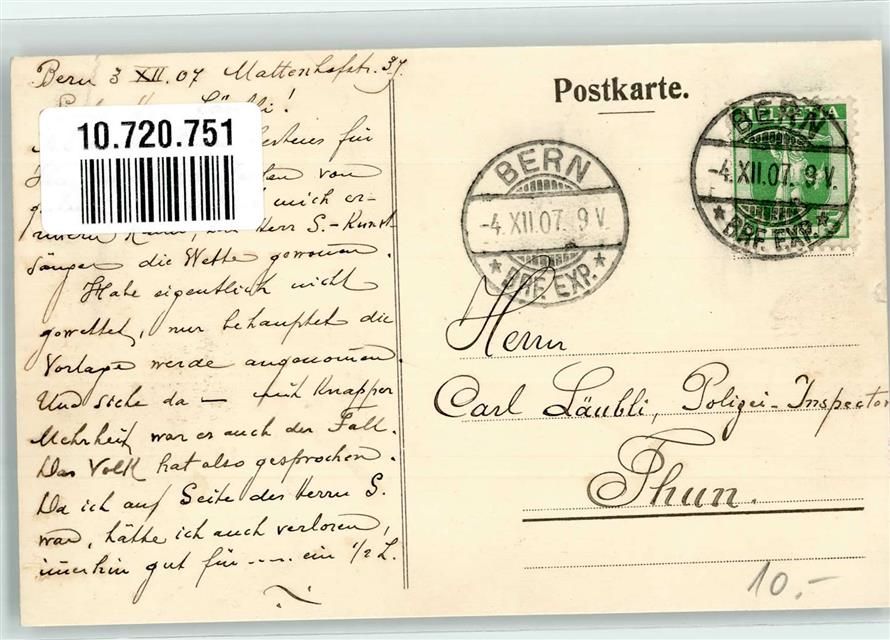 Bern 3 XII. 07 Mattenhofstr. 37.
Läubli!
10.720.751
für
von
mich er-
Herr S.-Kunst-
sänger die Wette gewonnen.
Habe eigentlich nicht
gewettet, nur behauptet die
Vorlage werde angenommen.
Und siehe da — mit knapper
Mehrheit war es auch der Fall.
Das Volk hat also gesprochen.
Da ich auf Seite des Herrn S.
war, hätte ich auch verloren,
immerhin gut für ---- ein 1/2 L.
Postkarte.
BERN
-4.XII.07. 9 V.
* BRF. EXP. *
HELVETIA
5
BERN
-4.XII.07. 9 V.
* BRF. EXP. *
Herrn
Carl Läubli, Polizei-Inspector
Thun.
10.-